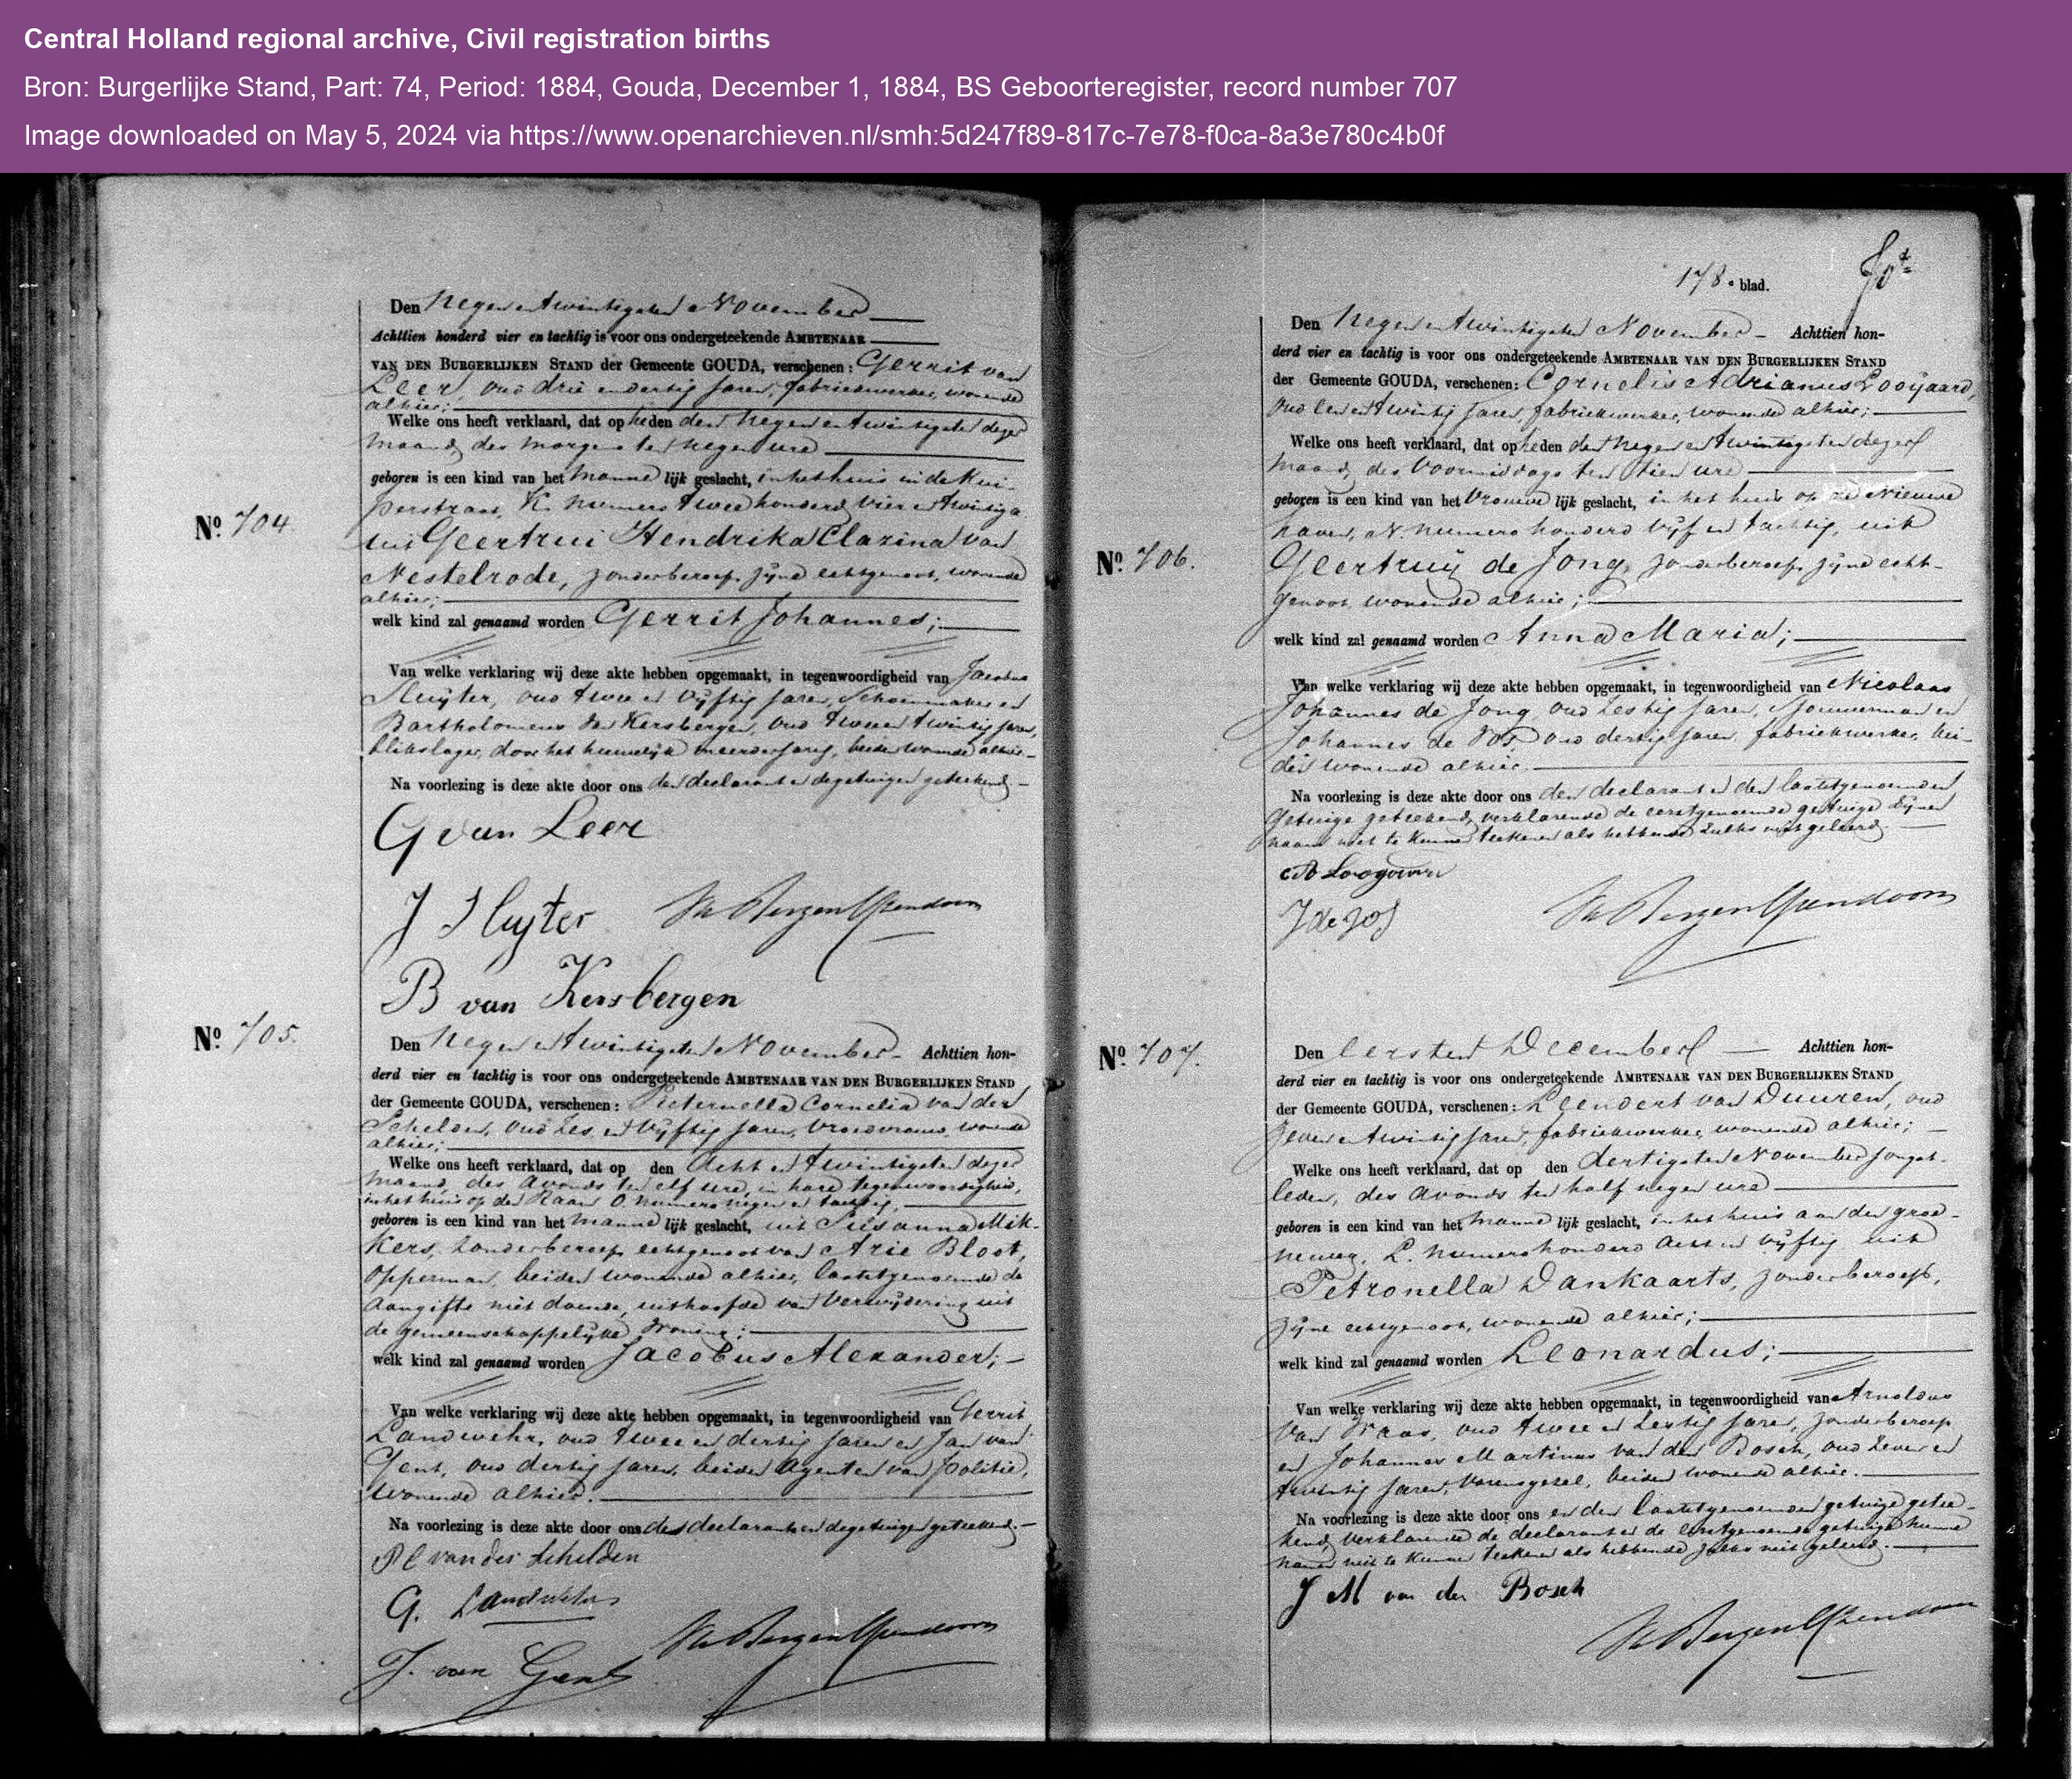 Central Holland regional archive, Civil registration births
Bron: Burgerlijke Stand, Part: 74, Period: 1884, Gouda, December 1, 1884, BS Geboorteregister, record number 707
Image downloaded on May 5, 2024 via https://www.openarchieven.nl/smh:5d247f89-817c-7e78-f0ca-8a3e780c4b0f
Den Negen en twintigsten November
Achttien honderd vier en tachtig is voor ons ondergeteekende AMBTENAAR
VAN DEN BURGERLIJKEN STAND der Gemeente GOUDA, verschenen: Gerrit van
Leer, oud drie en dertig jaren, fabriekwerker, wonende
alhier;
Welke ons heeft verklaard, dat op heden den negen en twintigsten dezer
maand, des morgens ten negen ure
geboren is een kind van het manne lijk geslacht, in het huis in de Kui-
perstraat, K. nummer twee honderd vier en twintig
uit Geertrui Hendrika Clazina van
Nestelrode, zonder beroep, zijne echtgenoot, wonende
alhier;
welk kind zal genaamd worden Gerrit Johannes;
Van welke verklaring wij deze akte hebben opgemaakt, in tegenwoordigheid van Jacobus
Sluijter, oud twee en vijftig jaren, Schoenmaker en
Bartholomeus van Kersbergen, oud twee en twintig jaren,
blikslager, door het huwelijk meerderjarig, beiden wonende alhier.
Na voorlezing is deze akte door ons den declarant en de getuigen geteekend.
G van Leer
J Sluyter
B van Kersbergen
No. 704
No. 705.
Den Negen en twintigsten November Achttien hon-
derd vier en tachtig is voor ons ondergeteekende AMBTENAAR VAN DEN BURGERLIJKEN STAND
der Gemeente GOUDA, verschenen: Pieternella Cornelia van der
Schelden, oud zes en vijftig jaren, vroedvrouw, wonende
alhier;
Welke ons heeft verklaard, dat op den acht en twintigsten dezer
maand, des avonds ten elf ure, in hare tegenwoordigheid,
in het huis op de Raam O. nummer negen en tachtig,
geboren is een kind van het manne lijk geslacht, uit Susanna Mik-
kers, zonder beroep, echtgenoot van Arie Bloot,
opperman, beiden wonende alhier, laatstgenoemde de
aangifte niet doende, uit hoofde van verwijdering uit
de gemeenschappelijke woning;
welk kind zal genaamd worden Jacobus Alexander;
Van welke verklaring wij deze akte hebben opgemaakt, in tegenwoordigheid van Gerrit
Landwehr, oud twee en dertig jaren en Jan van
Gent, oud dertig jaren, beiden Agenten van politie,
wonende alhier.
Na voorlezing is deze akte door ons de declarante en de getuigen geteekend.
P C van der Schelden
G. Landwehr
J. van Gent
178e blad.
Den Negen en twintigsten November Achttien hon-
derd vier en tachtig is voor ons ondergeteekende AMBTENAAR VAN DEN BURGERLIJKEN STAND
der Gemeente GOUDA, verschenen: Cornelis Adrianus Looijaard,
oud een en twintig jaren, fabriekwerker, wonende alhier;
Welke ons heeft verklaard, dat op heden den negen en twintigsten dezer
maand, des voormiddags ten tien ure
geboren is een kind van het vrouwe lijk geslacht, in het huis op de Nieuwe
haven, N. nummer honderd vijf en tachtig, uit
Geertruij de Jong, zonder beroep, zijne echt-
genoot, wonende alhier;
No. 706.
welk kind zal genaamd worden Anna Maria;
Van welke verklaring wij deze akte hebben opgemaakt, in tegenwoordigheid van Nicolaas
Johannes de Jong, oud zestig jaren, sjouwerman en
Johannes de Vos, oud dertig jaren, fabriekwerker, bei-
den wonende alhier.
Na voorlezing is deze akte door ons den declarant en den laatstgenoemden
getuige geteekend, verklarende de eerstgenoemde getuige zijnen
naam niet te kunnen teekenen als hebbende zulks niet geleerd.
J de Vos
No. 707.
Den eersten December Achttien hon-
derd vier en tachtig is voor ons ondergeteekende AMBTENAAR VAN DEN BURGERLIJKEN STAND
der Gemeente GOUDA, verschenen: Leendert van Duuren, oud
zeven en twintig jaren, fabriekwerker, wonende alhier;
Welke ons heeft verklaard, dat op den dertigsten November jongst-
leden, des avonds ten half negen ure
geboren is een kind van het manne lijk geslacht, in het huis aan den groe-
neweg, L. nummer honderd acht en vijftig uit
Petronella Dankaarts, zonder beroep,
zijne echtgenoot, wonende alhier;
welk kind zal genaamd worden Leonardus;
Van welke verklaring wij deze akte hebben opgemaakt, in tegenwoordigheid van Arnoldus
van oud twee en zestig jaren, zonder beroep
en Johannes Martinus van den Bosch, oud zeven en
twintig jaren, beiden wonende alhier.
Na voorlezing is deze akte door ons en den laatstgenoemden getuige getee-
kend, verklarende de declarant en de eerstgenoemde getuige hunne
namen niet te kunnen teekenen als hebbende zulks niet geleerd.
J M van den Bosch